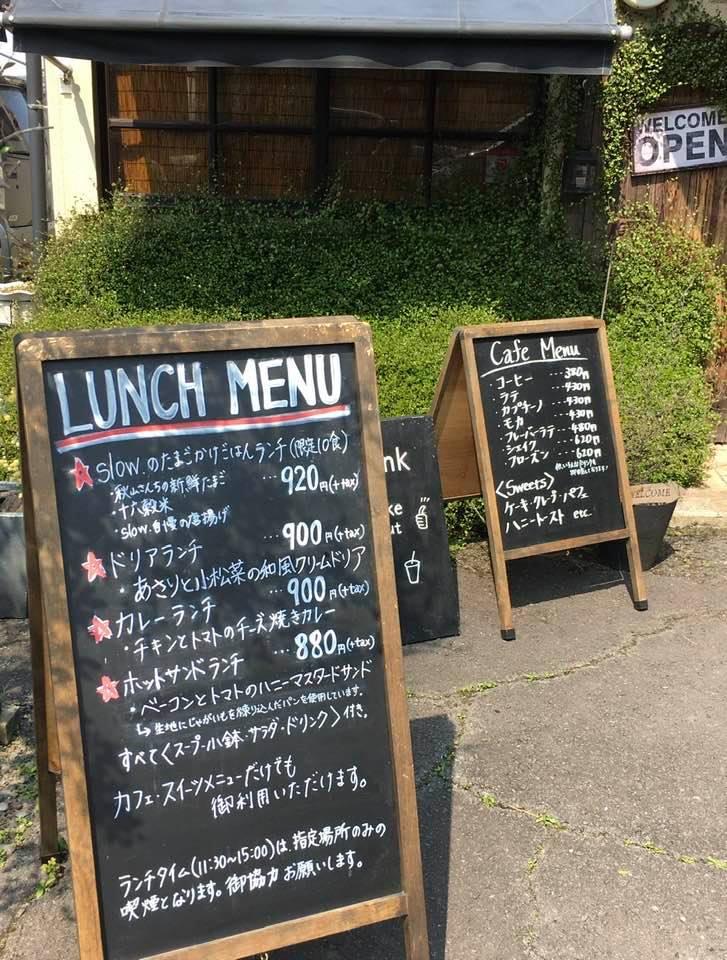 WELCOME
OPEN
LUNCH MENU
slow.のたまごかけごはんランチ(限定10食)
・秋山さんちの新鮮たまご …920円(+tax)
・十六穀米
・slow.自慢の唐揚げ
ドリアランチ …900円(+tax)
・あさりと小松菜の和風クリームドリア
カレーランチ …900円(+tax)
・チキンとトマトのチーズ焼きカレー
ホットサンドランチ …880円(+tax)
・ベーコンとトマトのハニーマスタードサンド
↳生地にじゃがいもを練り込んだパンを使用しています。
すべて〈スープ・小鉢・サラダ・ドリンク〉付き。
カフェ・スイーツメニューだけでも
御利用いただけます。
ランチタイム(11:30~15:00)は、指定場所のみの
喫煙となります。御協力お願いします。
nk
ke
ut
Cafe Menu
コーヒー …380円
ラテ …430円
カプチーノ …430円
モカ …430円
フレーバーラテ …480円
シェイク …620円
フローズン …620円
〈Sweets〉
ケーキ・クレープ・パフェ
ハニートースト etc.
WELCOME